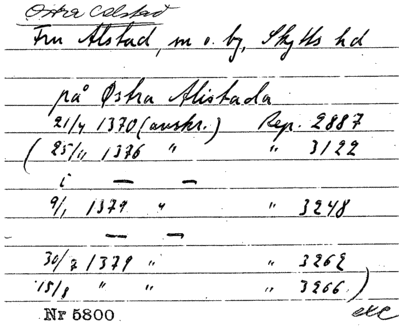 Östra Alstad
Fru Alstad, sn o. by, Skytts hd
på Østra Alistada
21/4 1370 (avskr.) Rep. 2887
( 25/11 1376 " " 3122
i — —
9/1 1379 " " 3248
— —
30/3 1379 " " 3262
15/8 " " " 3266 )
Nr 5800
etc